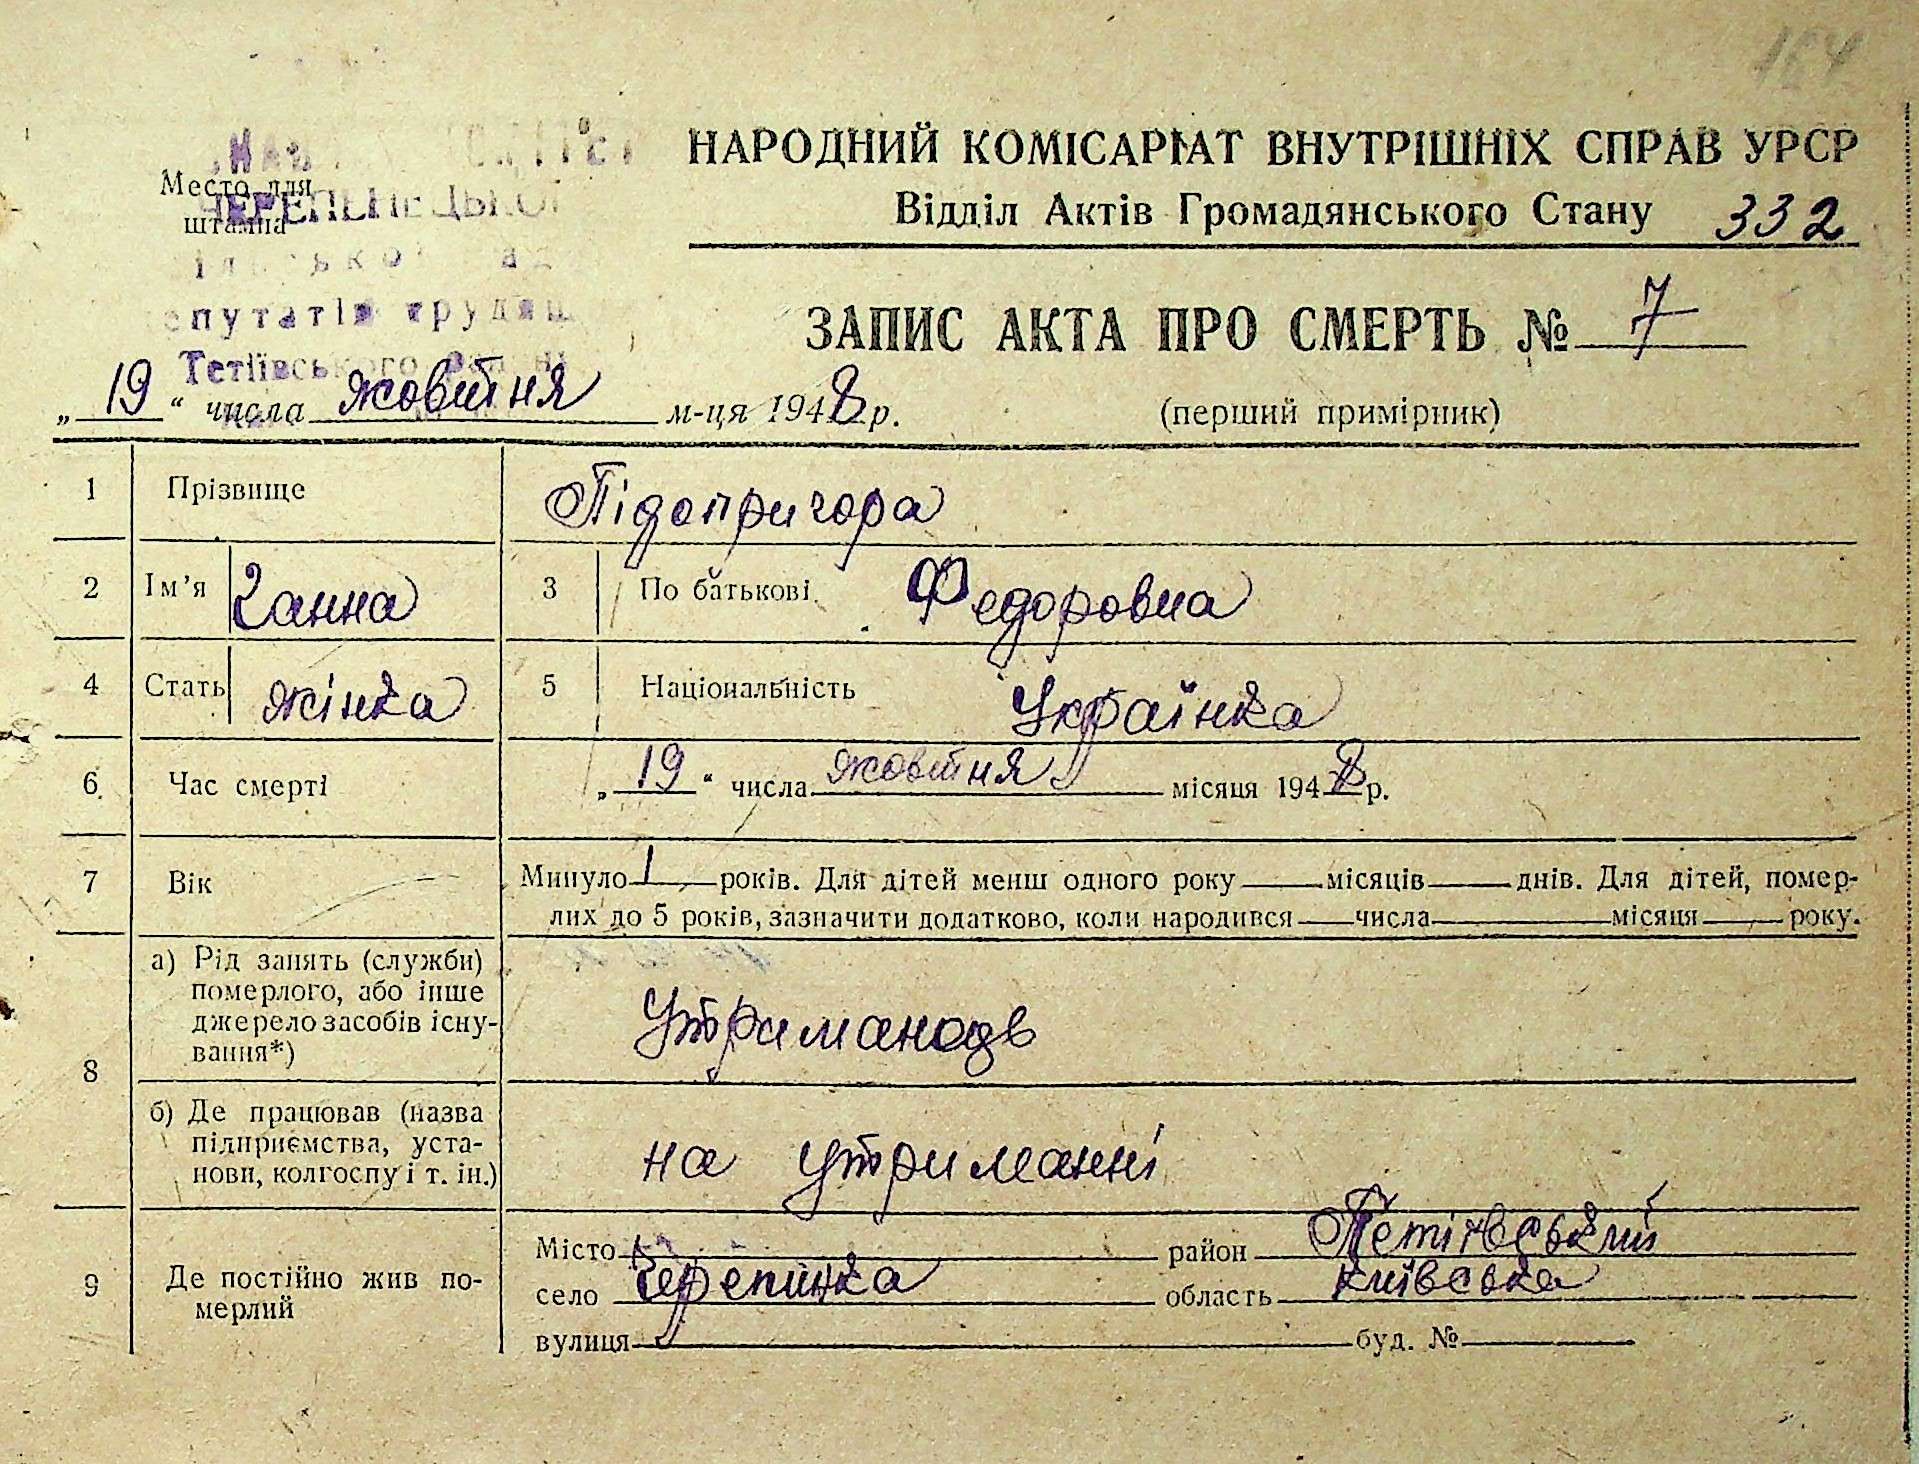 164
НАРОДНИЙ КОМІСАРІАТ ВНУТРІШНІХ СПРАВ УРСР
Место для штампа
ЧЕРЕПЕНЕЦЬКОЇ
Відділ Актів Громадянського Стану 332
путатів трудящ
Тетіївського
ЗАПИС АКТА ПРО СМЕРТЬ № 7
„19“ числа жовтня м-ця 1948 р.
(перший примірник)
1 Прізвище Підопригора
2 Ім'я Ганна 3 По батькові Федоровна
4 Стать жінка 5 Національність Українка
6 Час смерті „19“ числа жовтня місяця 1948 р.
7 Вік Минуло 1 років. Для дітей менш одного року — місяців — днів. Для дітей, помер-
лих до 5 років, зазначити додатково, коли народився — числа — місяця — року.
8 а) Рід занять (служби)
померлого, або інше
джерело засобів існу-
вання*)
Утриманодв
б) Де працював (назва
підприємства, уста-
нови, колгоспу і т. ін.)
на утриманні
9 Де постійно жив по-
мерлий
Місто район Тетіївський
село Черепинка область Київська
вулиця буд. №